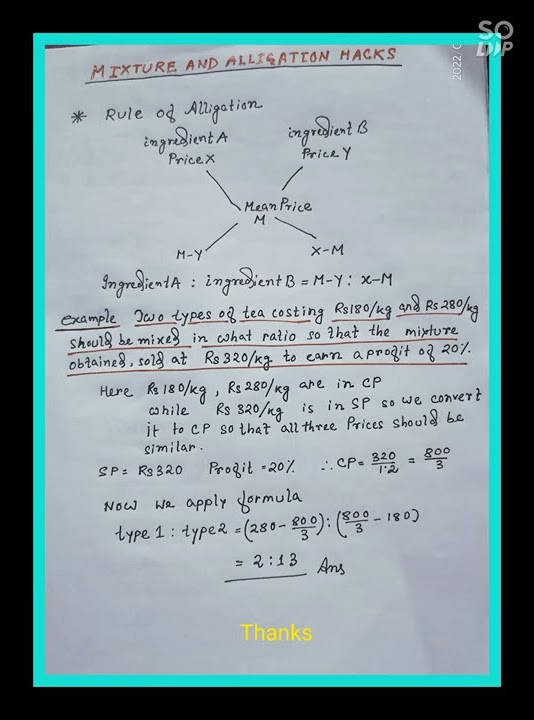 SO
DIP
2022/0
MIXTURE AND ALLIGATION HACKS
* Rule of Alligation
ingredient A ingredient B
Price X Price Y
Mean Price
M
M-Y X-M
Ingredient A : ingredient B = M-Y : X-M
example Two types of tea costing Rs180/kg and Rs 280/kg
should be mixed in what ratio so that the mixture
obtained, sold at Rs 320/kg to earn a profit of 20%.
Here Rs 180/kg, Rs 280/kg are in CP
while Rs 320/kg is in SP so we convert
it to CP so that all three Prices should be
similar.
SP = Rs 320 Profit = 20% ∴ CP = 320/1.2 = 800/3
Now we apply formula
type 1 : type 2 = (280 - 800/3) : (800/3 - 180)
= 2 : 13 Ans
Thanks